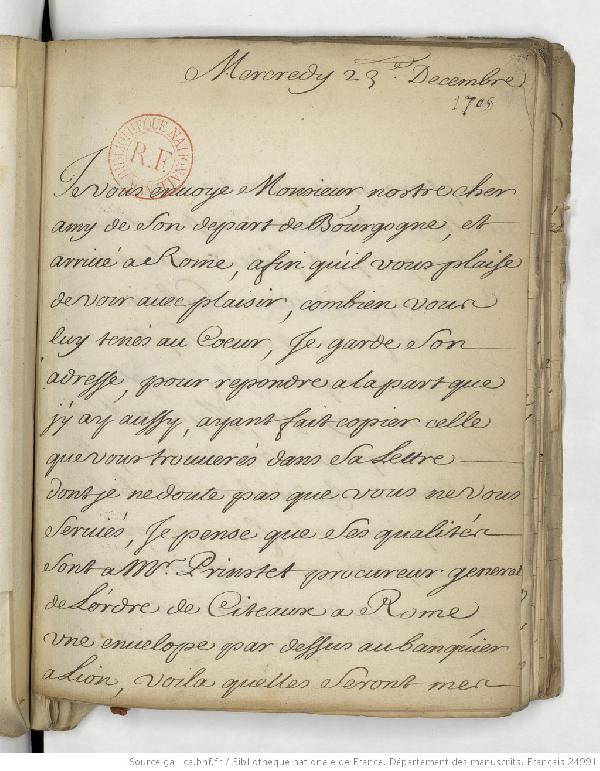 Mercredy 23e Decembre
1705
BIBLIOTHEQUE NATIONALE
R.F.
Je vous envoye Monsieur, nostre cher
amy de son depart de Bourgogne, et
arrivée a Rome, afin qu'il vous plaise
de voir avec plaisir, combien vous
luy tenés au Coeur, Je garde son
adresse, pour repondre a la part que
j'y ay aussy, ayant fait copier celle
que vous trouverés dans sa Lettre
dont je ne doute pas que vous ne vous
serviés, Je pense que ses qualités
sont a Mr. Prinstet procureur general
de L'ordre de Citeaux a Rome
vne envelope par dessus au banquier
a Lion, voila quelles seront mes
Source gallica.bnf.fr / Bibliothèque nationale de France. Département des manuscrits. Français 24991